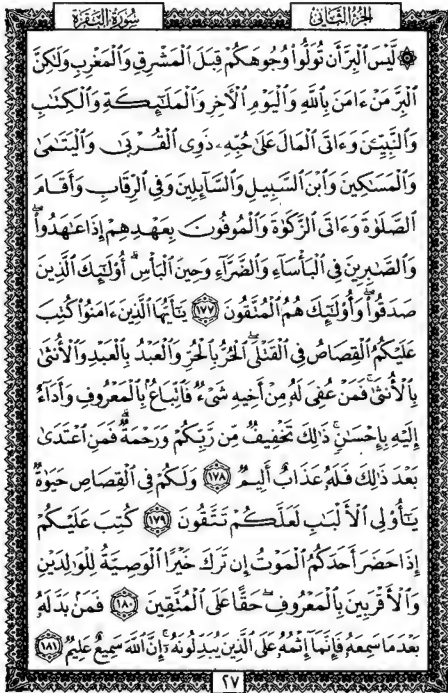 الجزء الثاني
سورة البقرة
۞ لَّيْسَ ٱلْبِرَّ أَن تُوَلُّوا۟ وُجُوهَكُمْ قِبَلَ ٱلْمَشْرِقِ وَٱلْمَغْرِبِ وَلَٰكِنَّ
ٱلْبِرَّ مَنْ ءَامَنَ بِٱللَّهِ وَٱلْيَوْمِ ٱلْءَاخِرِ وَٱلْمَلَٰٓئِكَةِ وَٱلْكِتَٰبِ
وَٱلنَّبِيِّۦنَ وَءَاتَى ٱلْمَالَ عَلَىٰ حُبِّهِۦ ذَوِى ٱلْقُرْبَىٰ وَٱلْيَتَٰمَىٰ
وَٱلْمَسَٰكِينَ وَٱبْنَ ٱلسَّبِيلِ وَٱلسَّآئِلِينَ وَفِى ٱلرِّقَابِ وَأَقَامَ
ٱلصَّلَوٰةَ وَءَاتَى ٱلزَّكَوٰةَ وَٱلْمُوفُونَ بِعَهْدِهِمْ إِذَا عَٰهَدُوا۟ۖ
وَٱلصَّٰبِرِينَ فِى ٱلْبَأْسَآءِ وَٱلضَّرَّآءِ وَحِينَ ٱلْبَأْسِۗ أُو۟لَٰٓئِكَ ٱلَّذِينَ
صَدَقُوا۟ۖ وَأُو۟لَٰٓئِكَ هُمُ ٱلْمُتَّقُونَ ١٧٧ يَٰٓأَيُّهَا ٱلَّذِينَ ءَامَنُوا۟ كُتِبَ
عَلَيْكُمُ ٱلْقِصَاصُ فِى ٱلْقَتْلَىۖ ٱلْحُرُّ بِٱلْحُرِّ وَٱلْعَبْدُ بِٱلْعَبْدِ وَٱلْأُنثَىٰ
بِٱلْأُنثَىٰۚ فَمَنْ عُفِىَ لَهُۥ مِنْ أَخِيهِ شَىْءٌ فَٱتِّبَاعٌۢ بِٱلْمَعْرُوفِ وَأَدَآءٌ
إِلَيْهِ بِإِحْسَٰنٍۗ ذَٰلِكَ تَخْفِيفٌ مِّن رَّبِّكُمْ وَرَحْمَةٌۗ فَمَنِ ٱعْتَدَىٰ
بَعْدَ ذَٰلِكَ فَلَهُۥ عَذَابٌ أَلِيمٌ ١٧٨ وَلَكُمْ فِى ٱلْقِصَاصِ حَيَوٰةٌ
يَٰٓأُو۟لِى ٱلْأَلْبَٰبِ لَعَلَّكُمْ تَتَّقُونَ ١٧٩ كُتِبَ عَلَيْكُمْ
إِذَا حَضَرَ أَحَدَكُمُ ٱلْمَوْتُ إِن تَرَكَ خَيْرًا ٱلْوَصِيَّةُ لِلْوَٰلِدَيْنِ
وَٱلْأَقْرَبِينَ بِٱلْمَعْرُوفِۖ حَقًّا عَلَى ٱلْمُتَّقِينَ ١٨٠ فَمَنۢ بَدَّلَهُۥ
بَعْدَ مَا سَمِعَهُۥ فَإِنَّمَآ إِثْمُهُۥ عَلَى ٱلَّذِينَ يُبَدِّلُونَهُۥٓۚ إِنَّ ٱللَّهَ سَمِيعٌ عَلِيمٌ ١٨١
٢٧